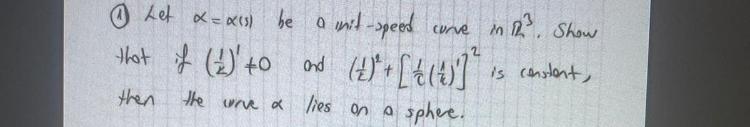 ① Let α = α(s) be a unit-speed curve in ℝ³. Show
that if (1/κ)' ≠ 0 and (1/κ)² + [1/τ (1/κ)']² is constant,
then the curve α lies on a sphere.